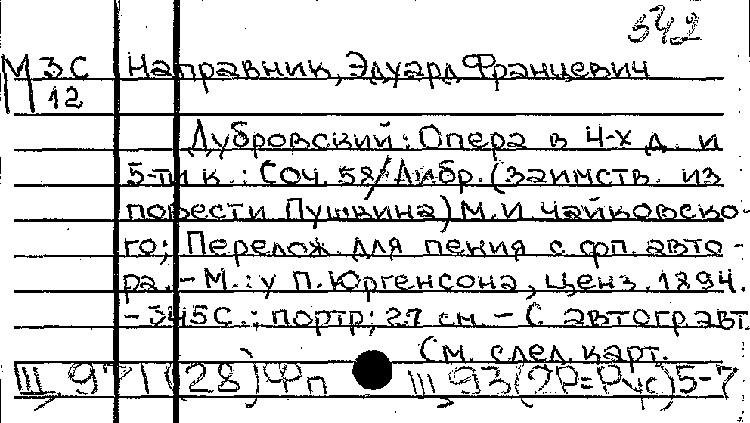 542
М З С Направник, Эдуард Францевич
П 12
Дубровский: Опера в 4-х д. и
5-ти к.: Соч. 58/Либр. (заимств. из
повести Пушкина) М.И Чайковско-
го; Перелож. для пения с фп. авто-
ра. - М.: у П. Юргенсона, ценз. 1894.
- 345 С.: портр; 27 см. - С автогр. авт.
См. след. карт.
III 971(28)Фп III 93(2Р=Рус)5-7